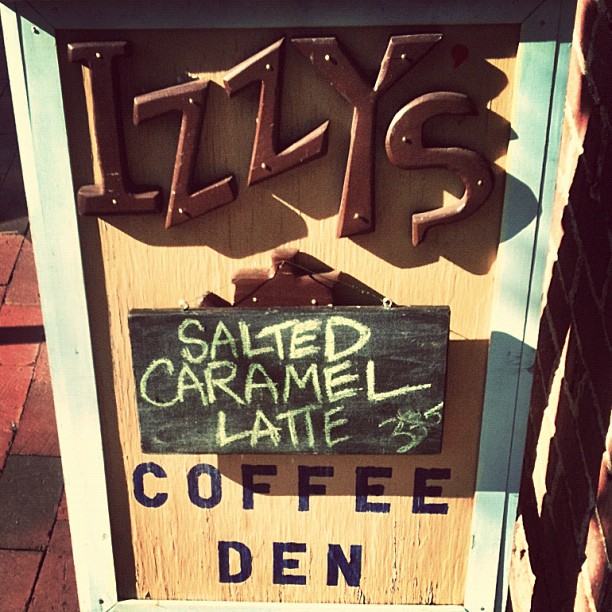 IZZY'S
SALTED
CARAMEL
LATTE
COFFEE
DEN